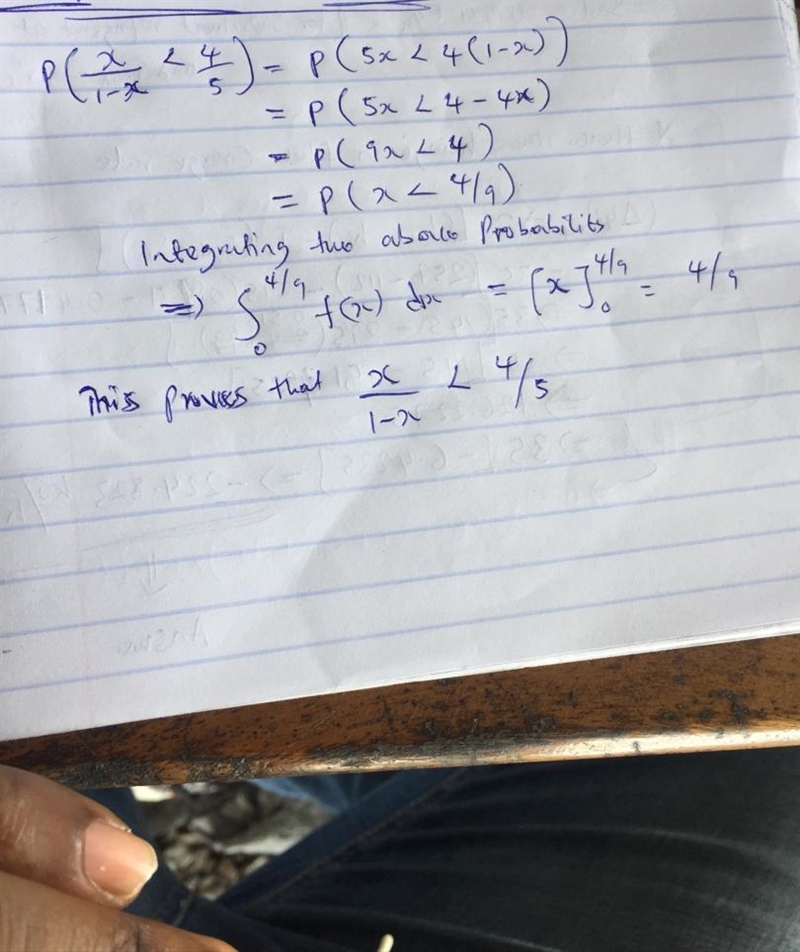 P(x/1-x < 4/5) = P(5x < 4(1-x))
= P(5x < 4-4x)
= P(9x < 4)
= P(x < 4/9)
Integrating two above Probabilits
=> ∫₀^4/9 f(x) dx = [x]₀^4/9 = 4/9
This proves that x/1-x < 4/5